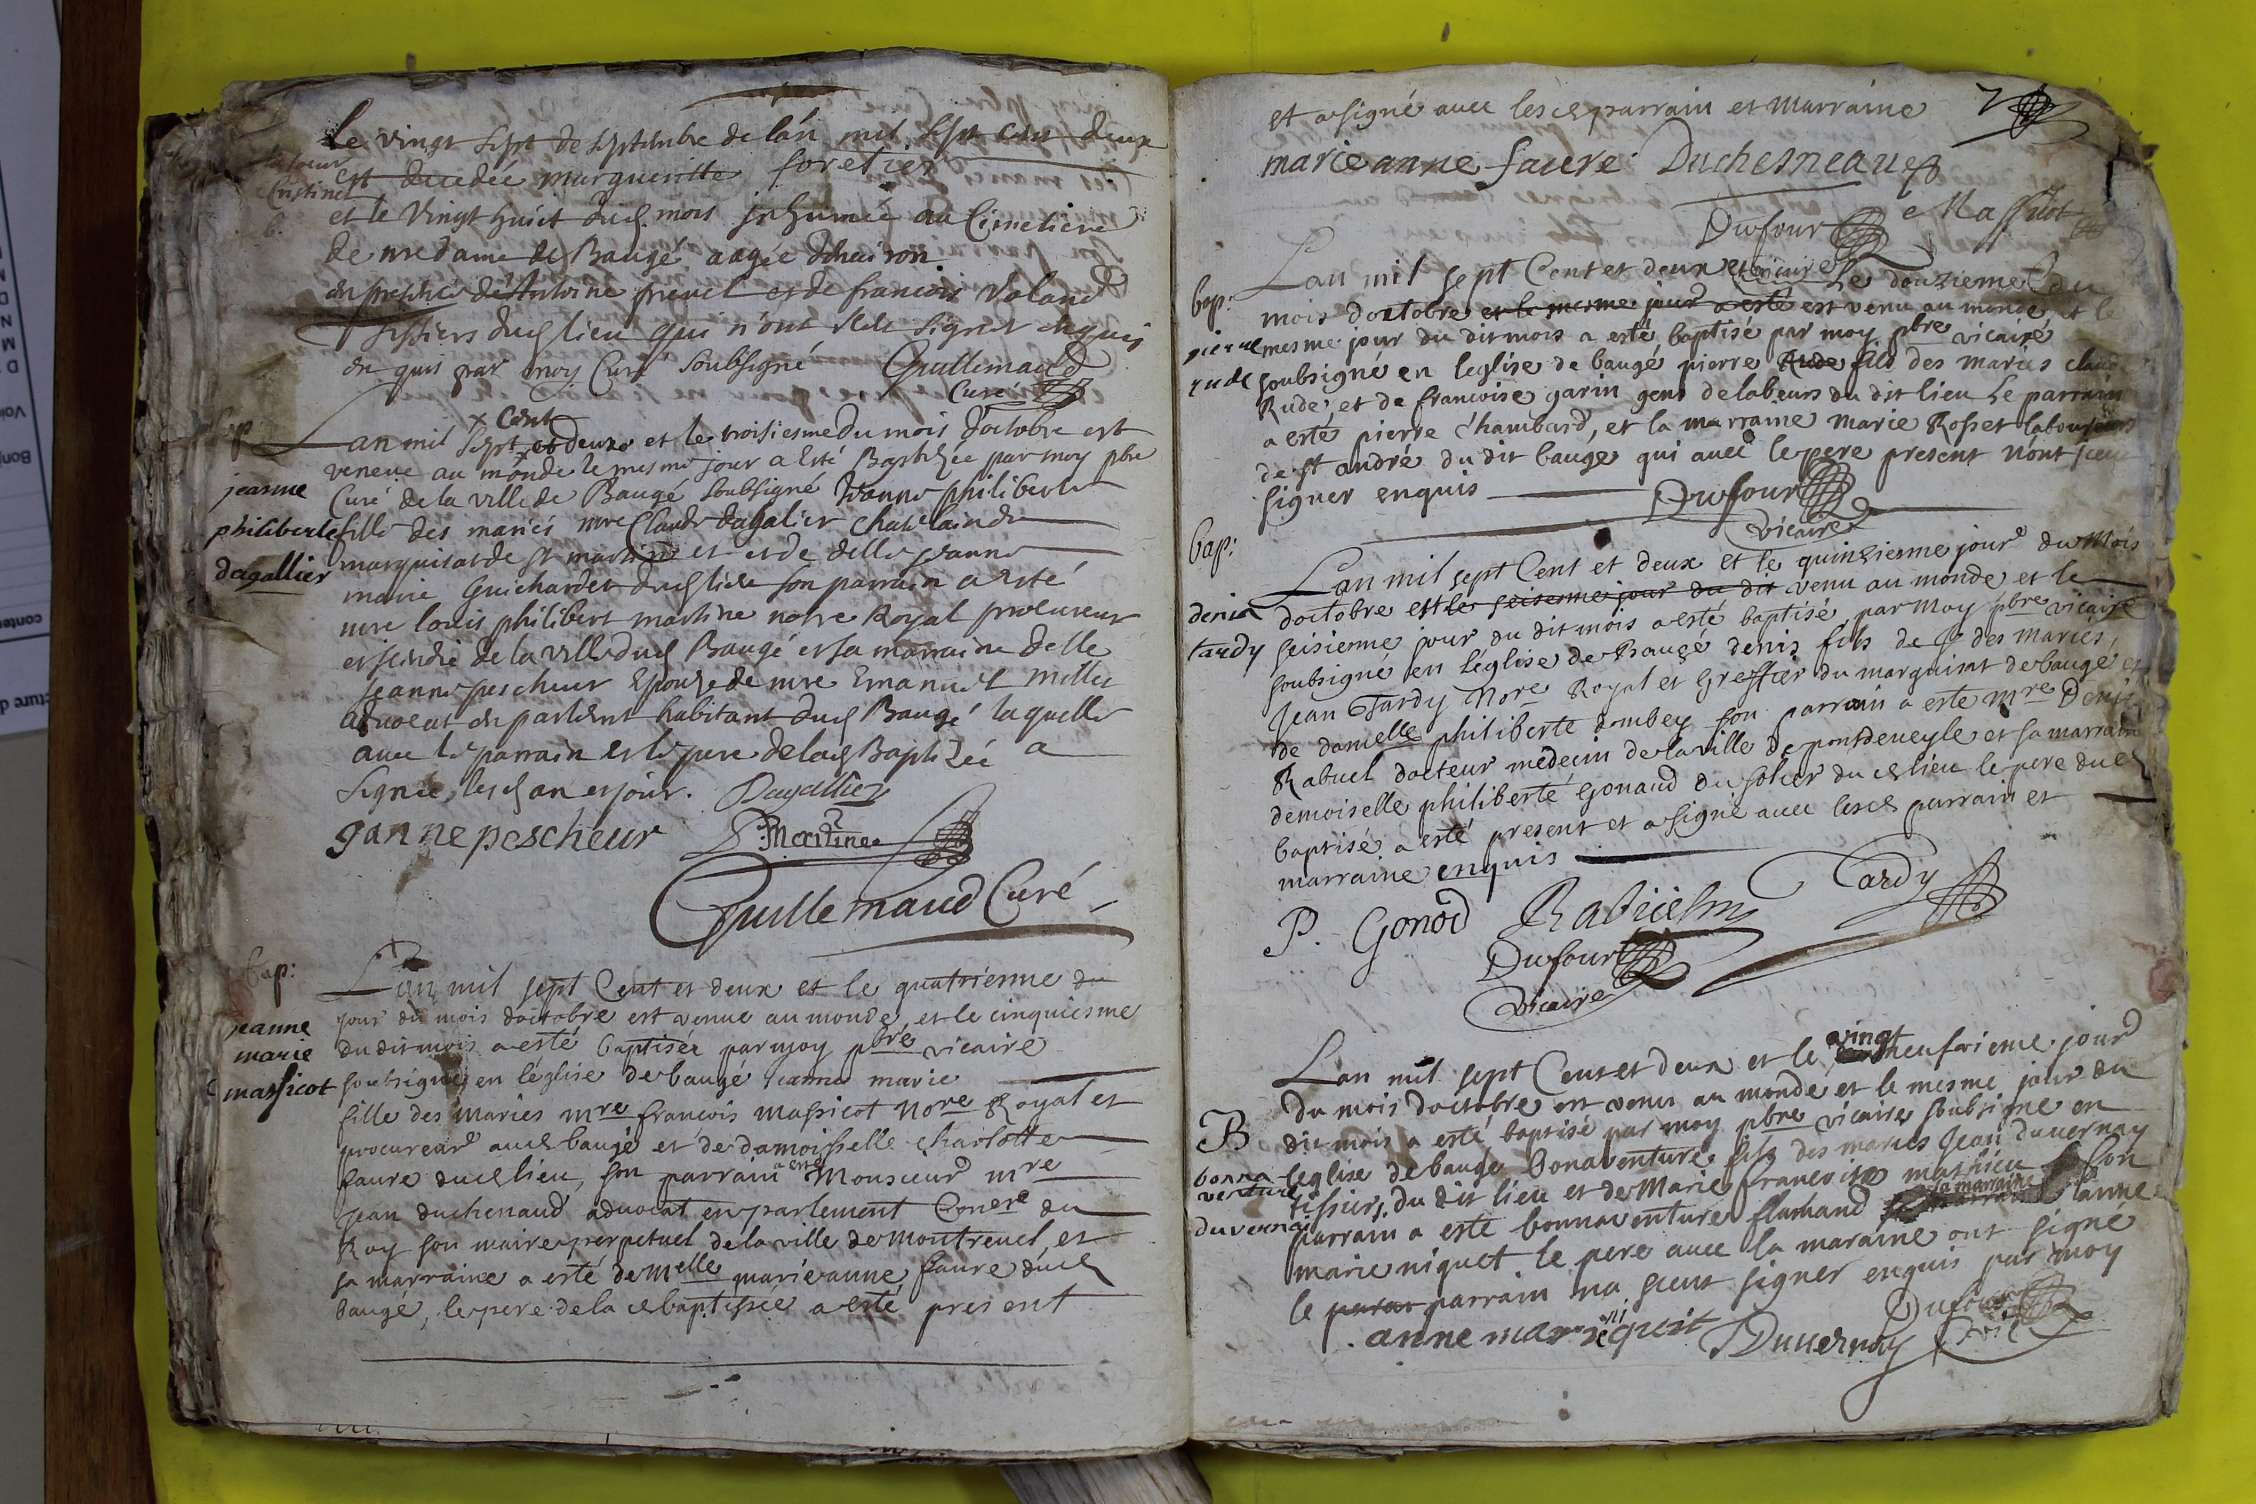 Le vingt sept de septembre de lan mil sept cens deux
est decedée margueritte foretier
et le vingt huict dud mois inhumée au Cimetiere
de nre dame de Baugé aagée denuiron
en presence de Antoine preuel et de francois Voland
tissiers dud lieu qui n'ont sceu signer enquis
en quis par moy Curé soubsigné Guillemaud
Curé
bap
jeanne
philiberte
dagallier
Lan mil sept Cent et deux et le troisiesme du mois doctobre est
veneue au monde le mesme jour a esté Baptizée par moy pbre
Curé de la ville de Baugé soubsigné Jeanne philiberte
fille des mariés mre Claude dagalier chatelain du
marquisat de st martin et et de delle jeanne
marie Guichardet dud lieu son parrain a esté
mre louis philibert martine notre Royal procureur
et scindic de la ville dud Baugé et sa marraine delle
jeanne pescheur Epouze de mre Emanuel millet
aduocat en parlemt habitant dud Baugé laquelle
auec le parrain et le pere de lad Baptizée a
signée, les d an et jour. Dagallier
janne pescheur P. Martine
Guillemaud Curé
bap:
jeanne
marie
massicot
Lan mil sept Cent et deux et le quatrieme du
jour du mois doctobre est venue au monde, et le cinquiesme
du dit mois a esté baptisee par moy pbre vicaire
soubsigné en léglise de baugé jeanne marie
fille des maries mre francois massicot nore Royal et
procureur aud baugé et de damoisselle charlotte
faure dud lieu, son parrain a esté Monsieur mre
jean duchenaud aduocat en parlement Conere du
Roy son maire perpetuel de la ville de montreuel et
sa marraine a esté demelle marie anne faure dud
baugé, le pere de la d baptissée a esté present
et a signé auec les d parrain et marraine
marie anne faure Duchesneau
Dufour Massicot
vicaire
bap:
pierre
rude
Lan mil sept Cent et deux et le douzieme du
mois doctobre et le mesme jour a esté est venu au monde et le
mesme jour du dit mois a esté baptisé par moy pbre vicaire
soubsigné en leglise de baugé pierre Rude fils des maries claude
Rude et de francoise garin gens de labeurs du dit lieu le parrain
a esté pierre Chambard, et la marraine marie Rosset laboureurs
de st andré du dit bauge qui auec le pere present nont sceu
signer enquis Dufour
vicaire
bap:
denis
tardy
Lan mil sept Cent et deux et le quinziesme jour du mois
doctobre est le seisiesme jour du dit venu au monde et le
seisieme jour du dit mois a esté baptisé par moy pbre vicaire
soubsigné en léglise de Baugé denis fils de des maries
jean Tardy Nore Royal et greffier du marquisat de baugé et
de damelle philiberte dombey son parrain a esté mre Denis
Rabuel docteur medecin de la ville de pondeueyle et sa marraine
demoiselle philiberté Gonaud du solier dud lieu le pere dud
baptisé a esté present et a signé auec les d parrain et
marraine enquis
P. Gonod Rabuel Tardy
Dufour
vicaire
B
bonna
venture
duvernai
Lan mil sept Cent et deux et le vingt neufvieme jour
du mois doctobre est venu au monde et le mesme jour du
dit mois a esté baptisé par moy pbre vicaire soubsigné en
leglise de baugé bonaventure fils des maries jean duuernay
tissier, du dit lieu et de Marie francoise mathieu son
parrain a esté bonnaventure flamand la marraine anne
marie niquet le pere auec la maraine ont signé
le parrain na sceut signer enquis par moy
anne marie niquit Duuernay Dufour
vic